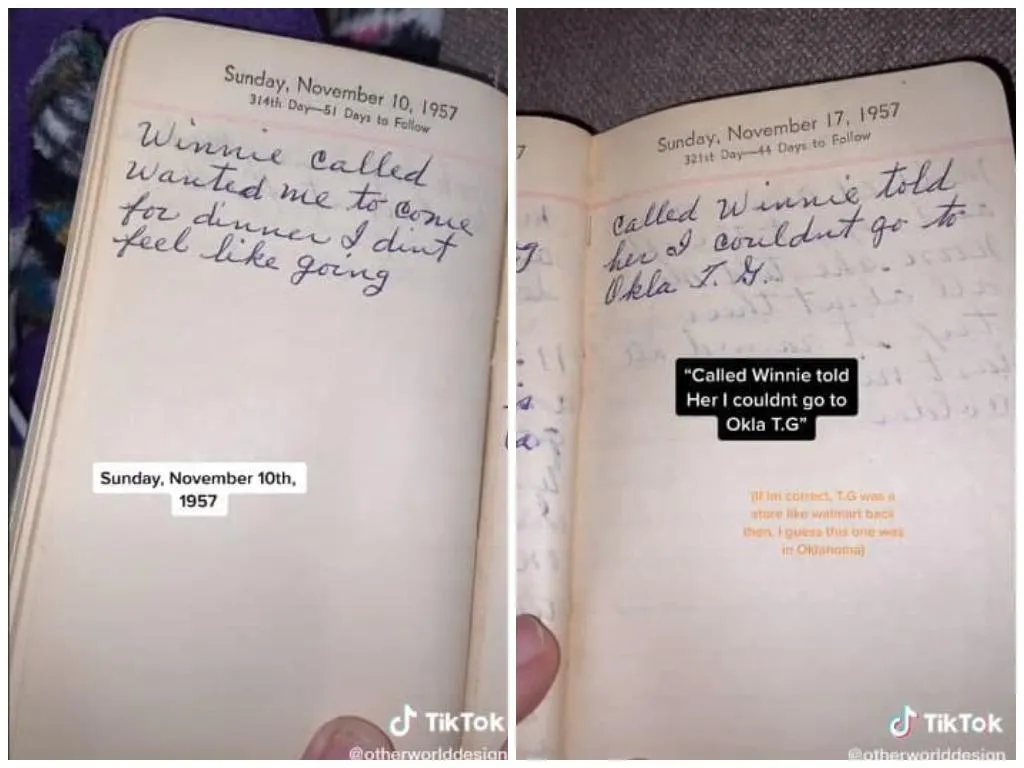 Sunday, November 10, 1957
314th Day—51 Days to Follow
Winnie called
wanted me to come
for dinner I dint
feel like going
Sunday, November 10th,
1957
TikTok
@otherworlddesign
7
Sunday, November 17, 1957
321st Day—44 Days to Follow
called Winnie told
her I couldnt go to
Okla T. G.
"Called Winnie told
Her I couldnt go to
Okla T.G"
(If im correct, T.G was a
store like walmart back
then, I guess this one was
in Oklahoma)
TikTok
@otherworlddesign